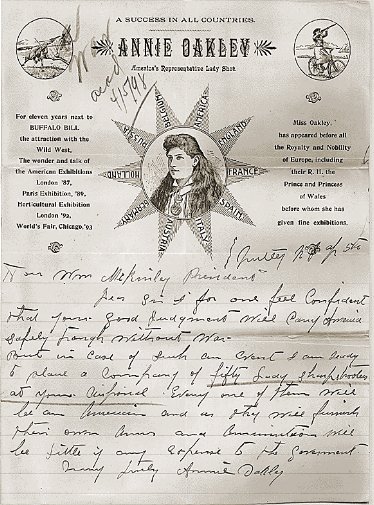 A SUCCESS IN ALL COUNTRIES.
ANNIE OAKLEY
America's Representative Lady Shot.
For eleven years next to
BUFFALO BILL
the attraction with the
Wild West.
The wonder and talk of
the American Exhibitions
London '87,
Paris Exhibition, '89,
Horticultural Exhibition
London '92,
World's Fair, Chicago, '93
AMERICA
ENGLAND
FRANCE
SPAIN
ITALY
AUSTRIA
GERMANY
HOLLAND
RUSSIA
BELGIUM
Miss Oakley,
has appeared before all
the Royalty and Nobility
of Europe, including
their R. H. the
Prince and Princess
of Wales
before whom she has
given fine exhibitions.
4/5/98
Nutley
Hon Wm McKinley President
Dear Sir I for one feel Confident
that your good judgment will carry America
safely through without War
But in case of such an Event I am ready
to place a Company of fifty lady sharpshooters
at your disposal Every one of them will
be an American and as they will furnish
their own Arms and Ammunition will
be little if any expense to the Government
Very Truly
Annie Oakley